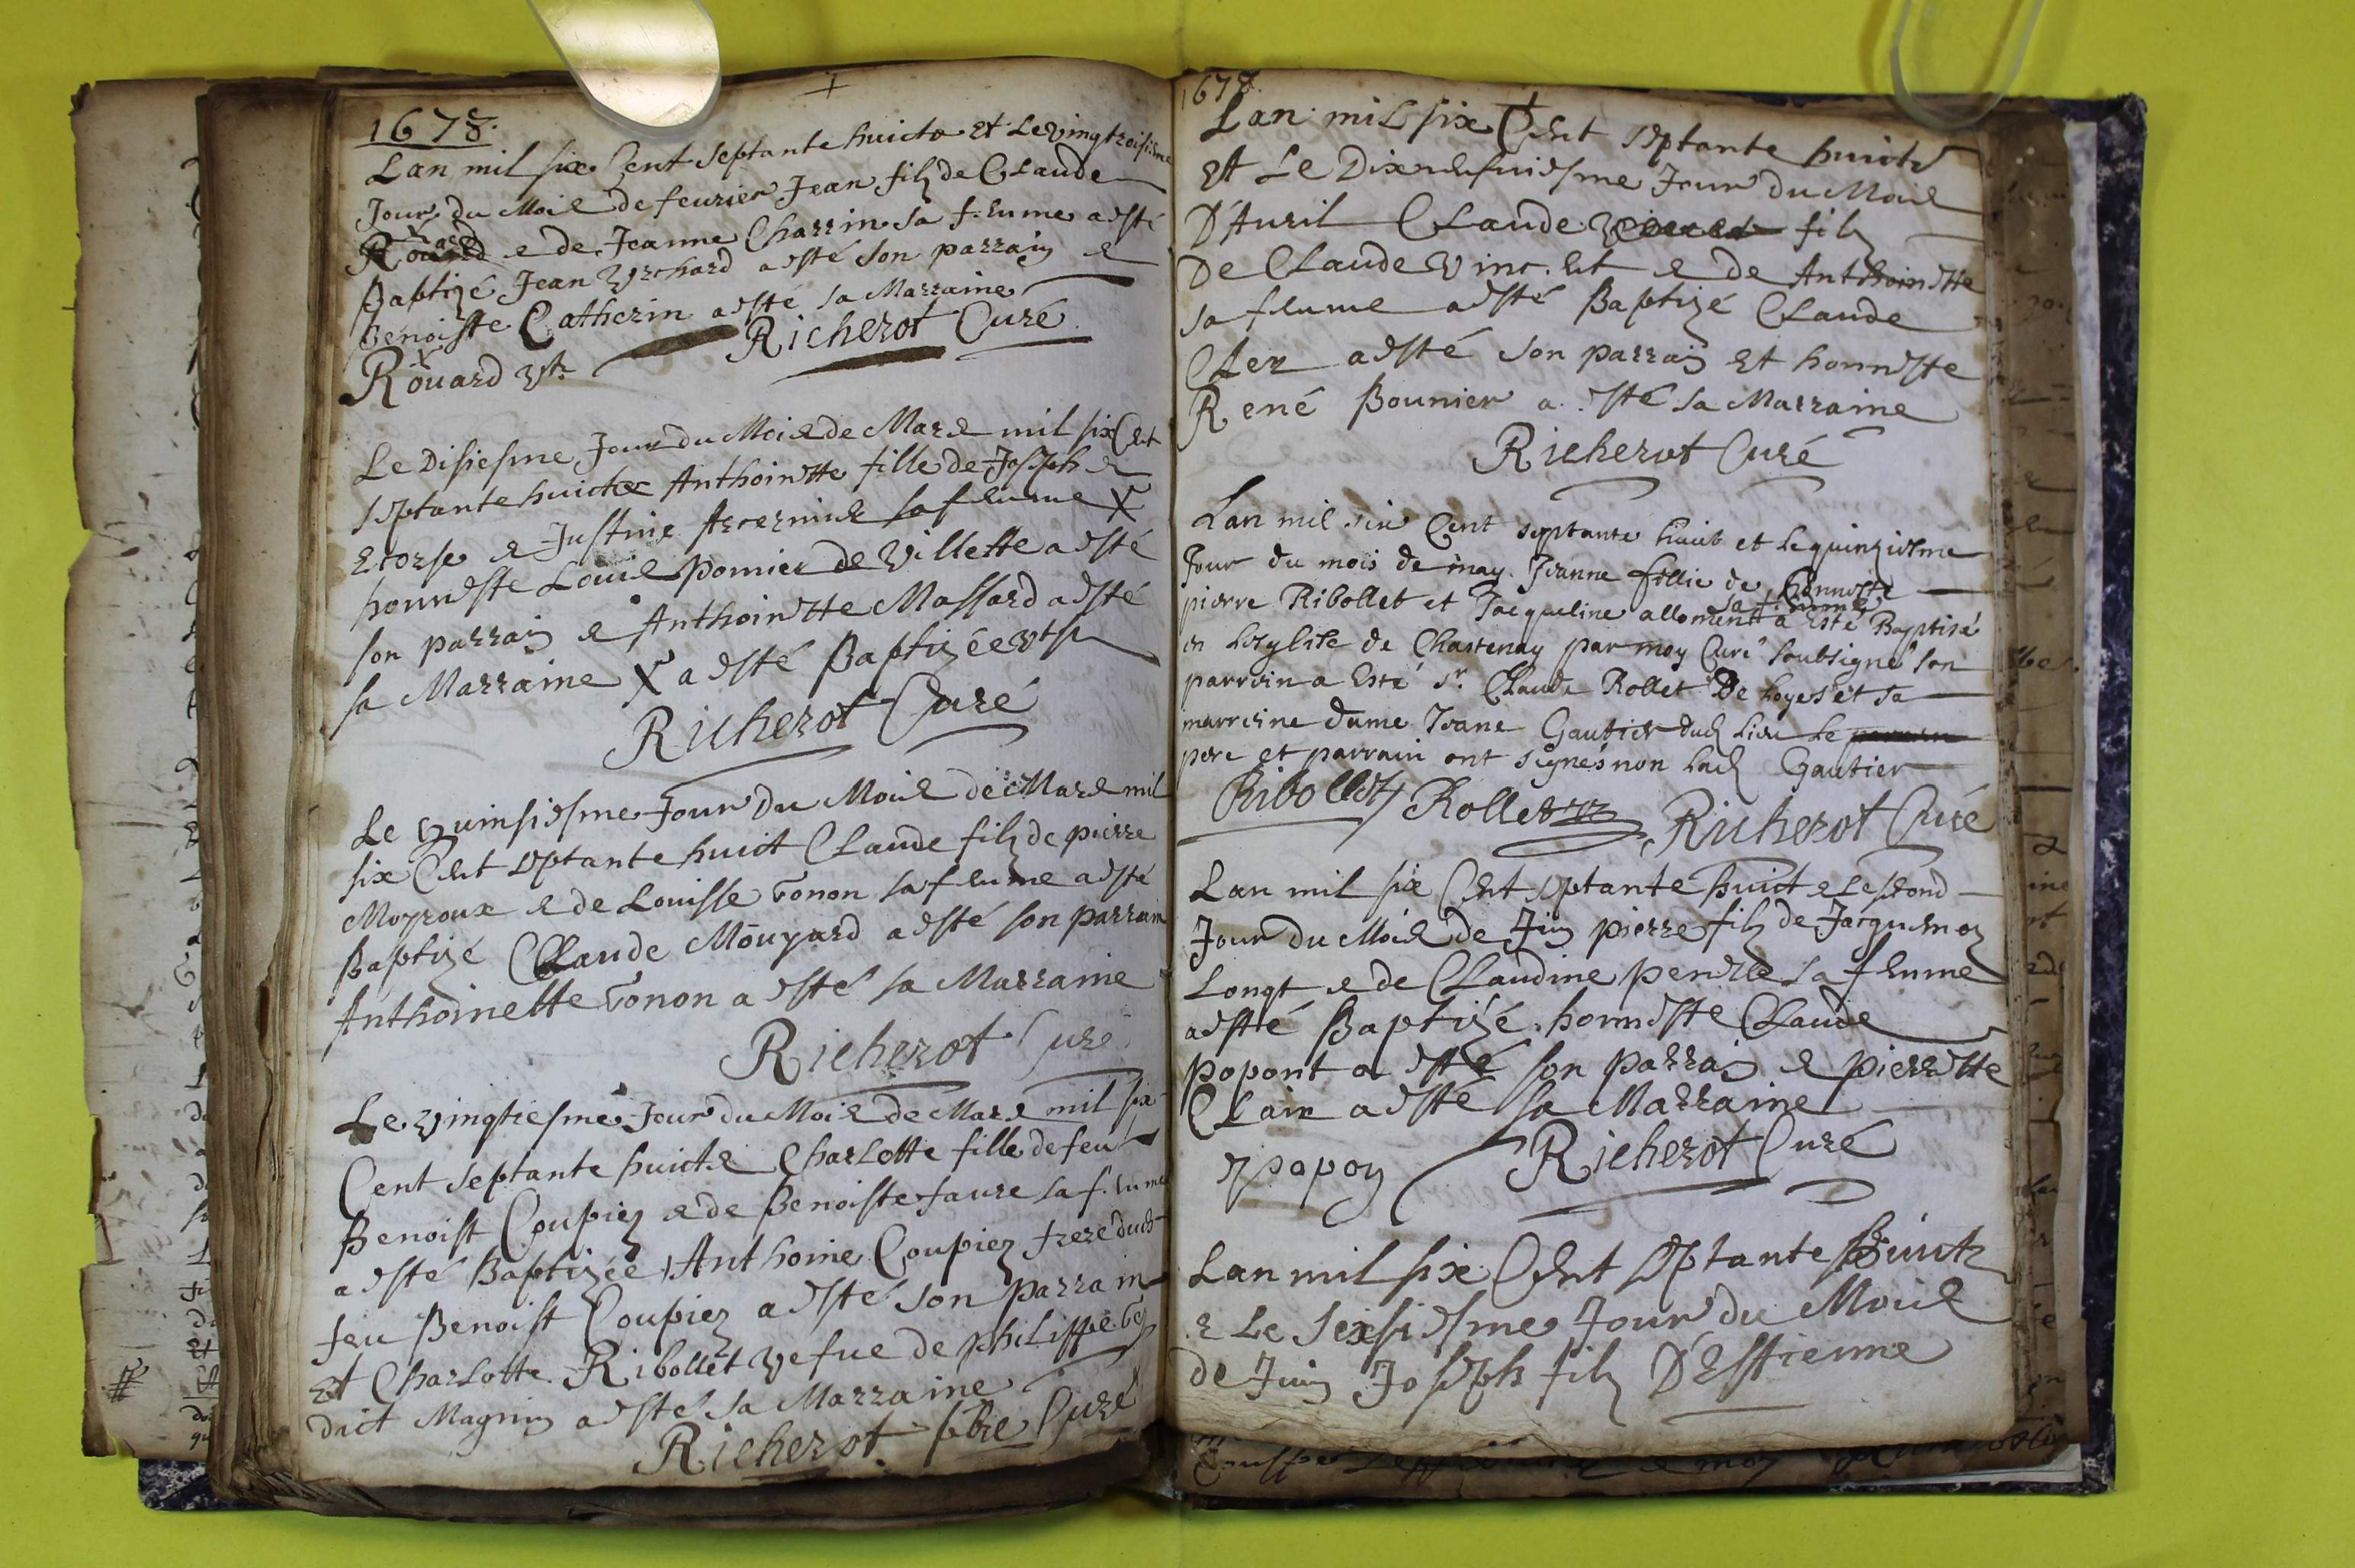 1678.
Lan mil six Cent septante huict et Le vingtroisiesme
Jour du Mois de feurier Jean filz de CLaude
Rouard e de Jeanne Charrin sa femme a esté
Baptizé Jean Vrchard a esté son parrain e
Benoiste Catherin a esté sa Marraine
Richerot Curé
Rouard
Le Disiesme Jour du Mois de Mars mil six Cent
septante huict Anthoinette fille de Joseph
e Justine sa femme X
honneste Louis pomier de Villette a esté
son parrain e Anthoinette Massard a esté
sa Marraine X a esté Baptizée
Richerot Curé
Le quinsiesme Jour Du Mois de Mars mil
six Cent septante huict CLaude filz de pierre
Moyroux e de Louisse Gonon sa femme a esté
Baptizé CLaude Mouyard a esté son parrain
Anthoinette Gonon a esté sa Marraine
Richerot Curé
Le vingtiesme Jour du Mois de Mars mil six
Cent septante huict CharLotte fille de feu
Benoist Coupier e de Benoiste faure sa femme
a esté Baptizée Anthoine Coupier frere dud
feu Benoist Coupier a esté son parrain
Et CharLotte Ribollet vefue de phiLippe be
dict Magnin a esté sa Marraine
Richerot pbre Curé
1678
Lan mil six Cent septante huict
Et Le Dixneufuiesme Jour du Mois
D'Auril CLaude filz
De CLaude Vincent e de Anthoinette
sa femme a esté Baptizé CLaude
CLer a esté son parrain Et honneste
René Bounier a esté sa Marraine
Richerot Curé
Lan mil six Cent septante huit et le quinziesme
Jour du mois de may Jeanne fillie de honneste
pierre Ribollet et Jacqueline alloment sa femme a Esté Baptisé
en Lesglise de Chastenay par moy Curé soubsigné son
parrein a Esté sr. Claude Rollet De Loyes et sa
marreine dame Jeane Gautier dud Lieu Le
pere et parrain ont signés non lad Gautier
Ribollet Rollet Richerot Curé
Lan mil six Cent septante huict e Le second
Jour du Mois de Juin pierre filz de Jacquemoz
Longt e de CLaudine sa femme
a esté Baptizé honneste CLaude
popont a esté son parrain e pierrette
CLair a esté sa Marraine
popon Richerot Curé
Lan mil six Cent septante huict
e Le sexsiesme Jour du Mois
de Juin Joseph filz D'Estienne